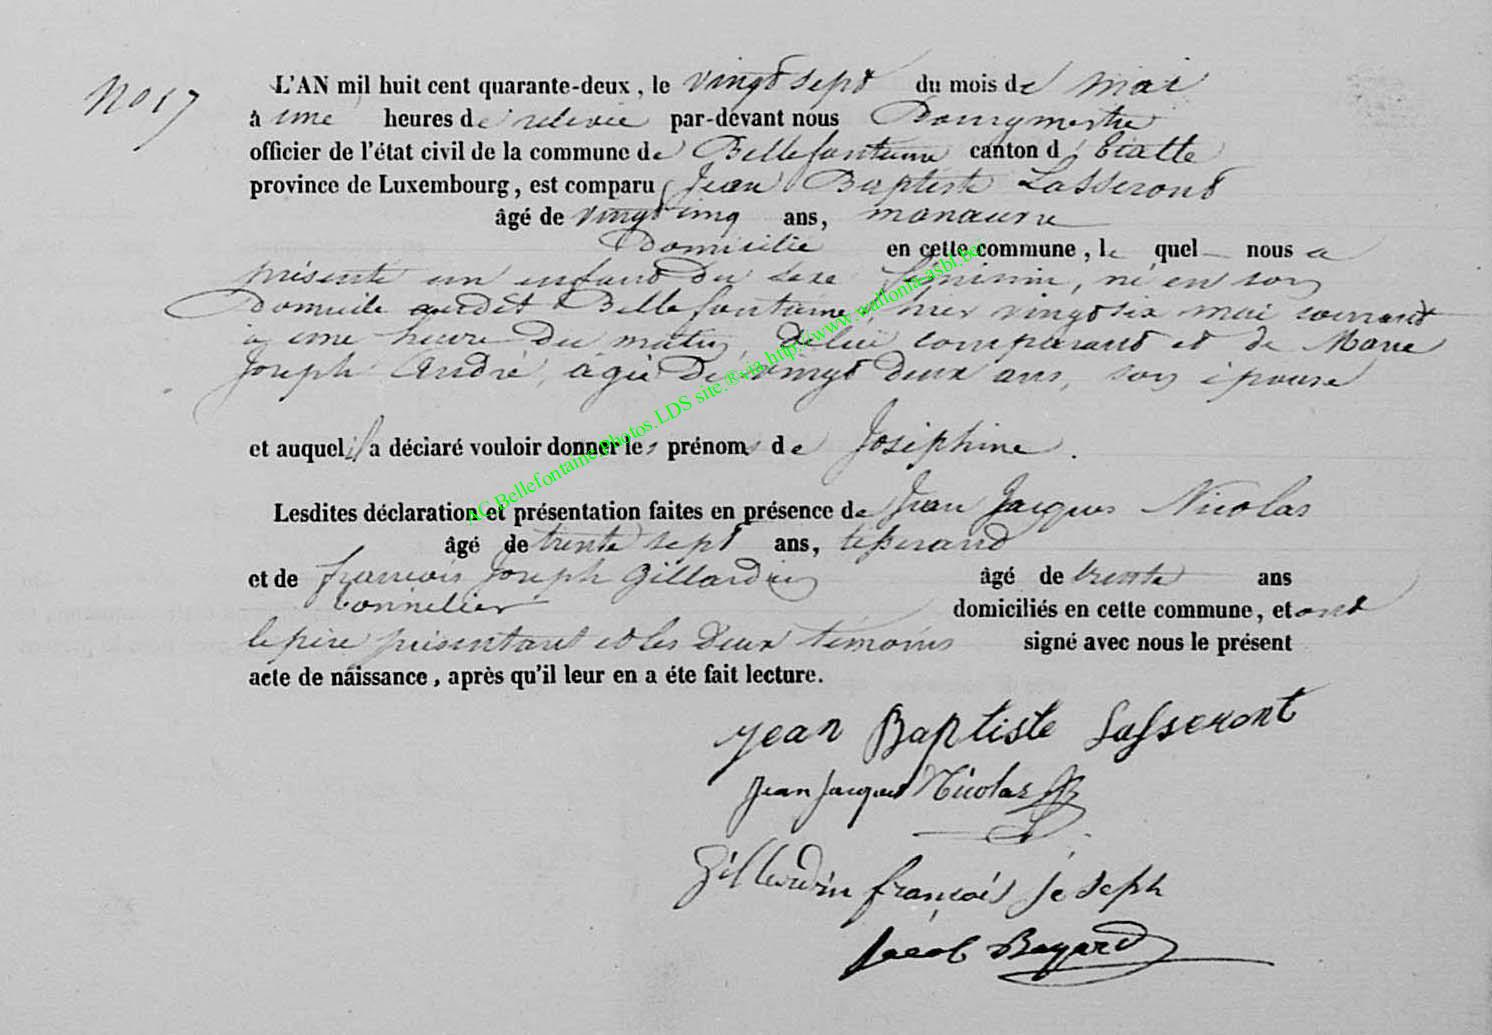 No 17
L'AN mil huit cent quarante-deux, le vingt sept du mois de mai
à une heures de relevée par-devant nous Bourgmestre
officier de l'état civil de la commune de Bellefontaine canton d'Etalle
province de Luxembourg, est comparu Jean Baptiste Lasseront
âgé de vingt cinq ans, manœuvre
Domicilié en cette commune, le quel nous a
présenté un enfant du sexe féminin, né en son
Domicile audit Bellefontaine, hier vingt six mai courant
à une heure du matin, de lui comparant et de Marie
Joseph André, agée de vingt deux ans, son épouse
et auquel il a déciaré vouloir donner les prénoms de Joséphine.
Lesdites déclaration et présentation faites en présence de Jean Jacques Nicolas
âgé de trente sept ans, tisserand
et de françois Joseph Gillardin âgé de trente ans
domiciliés en cette commune, et ont
le père présentant et les Deux témoins signé avec nous le présent
acte de naissance, après qu'il leur en a éte fait lecture.
Jean Baptiste Lasseront
Jean Jacques Nicolas
Gillardin françois joseph
Jacob Bayard
AC.Bellefontaine.Photos.LDS site.®via.http://www.wallonia-asbl.be